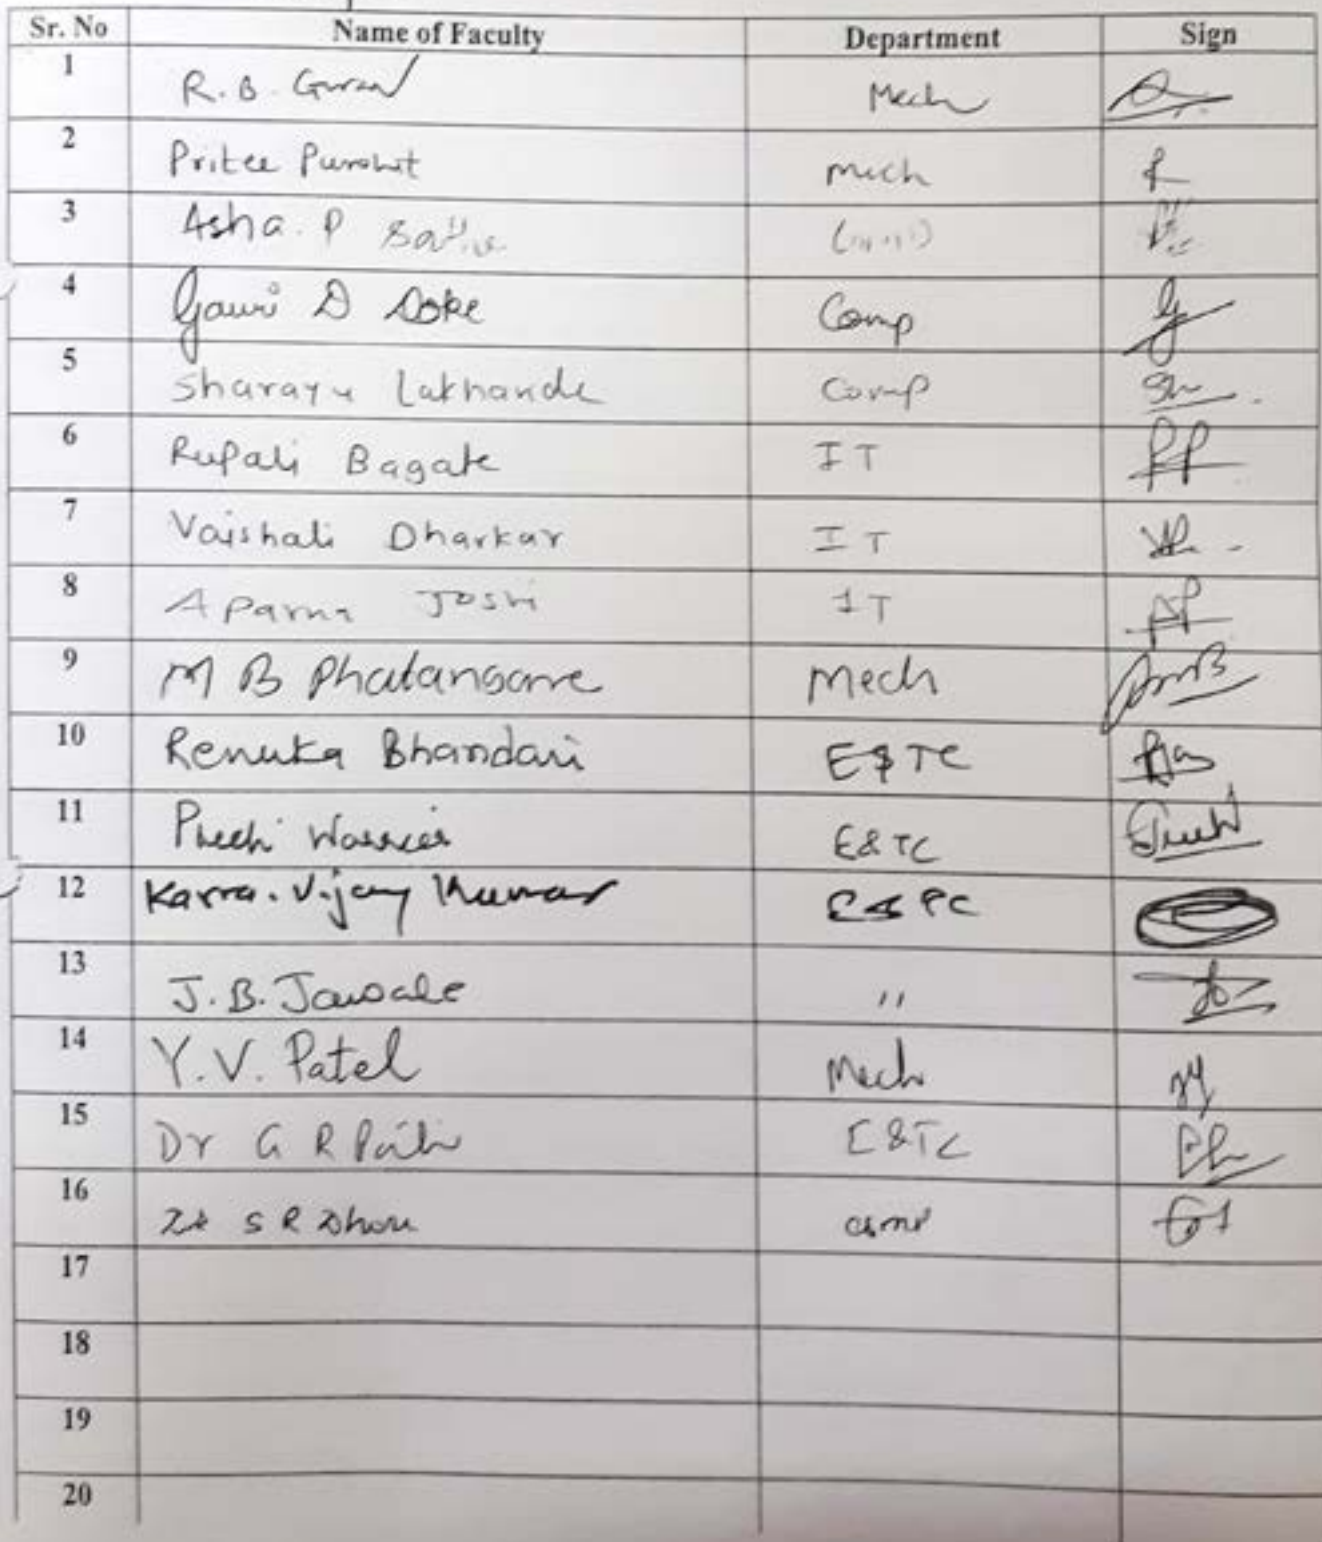 Sr. No Name of Faculty Department Sign
1 R. B. Mech
2 Pritee Purohit Mech
3 Asha. P
4 Gauri D Doke Comp
5 Sharayu Lakhande Comp
6 Rupali Bagate IT
7 Vaishali Dharkar IT
8 Aparna Joshi IT
9 M B Phatangare Mech
10 Renuka Bhandari E&TC
11 Preethi Warrier E&TC
12 Karra. Vijay Kumar
13 J. B. Jawale "
14 Y. V. Patel Mech
15 Dr G R Patil E&TC
16 S R Dhore comp
17
18
19
20